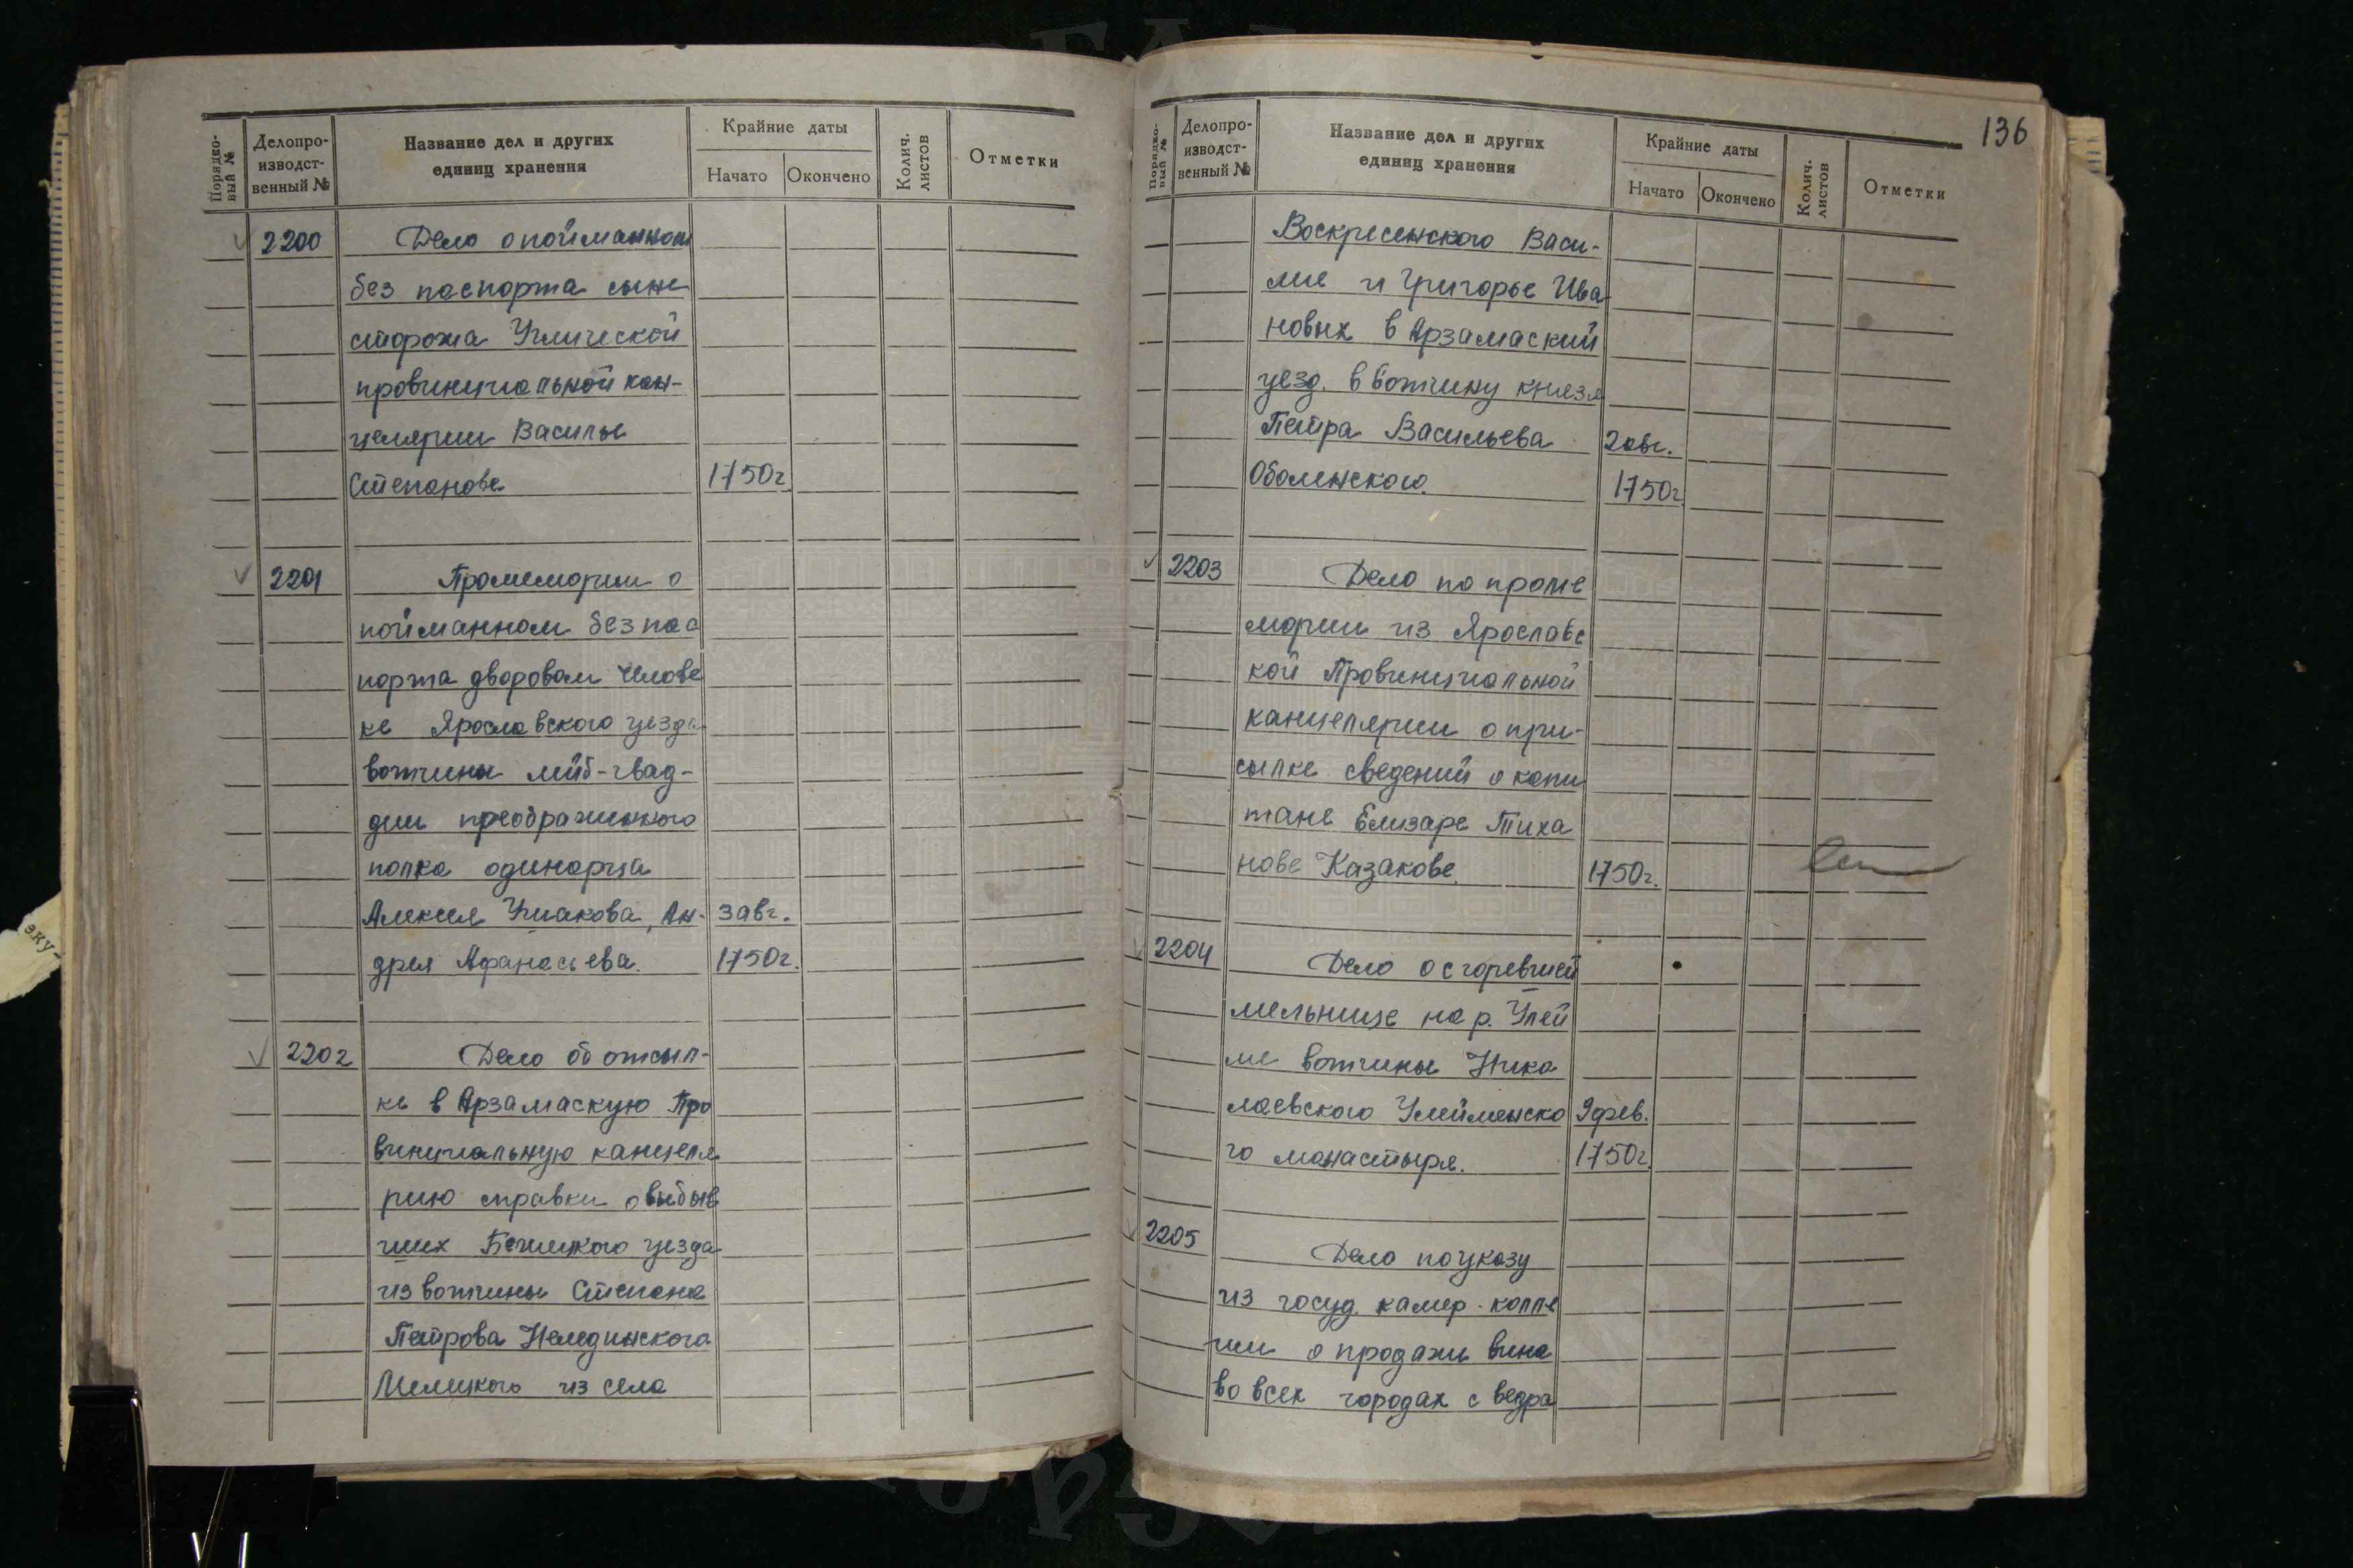 Порядковый №
Делопроизводственный №
Название дел и других единиц хранения
Крайние даты
Начато
Окончено
Колич. листов
Отметки
2200 Дело о пойманном
без паспорта сыне
сторожа Углической
провинциальной кан-
целярии Василье
Степанове 1750г.
2201 Промемории о
пойманном без пас
порта дворовом челове
ке Ярославского уезда
вотчины лейб-гвад-
дии преображенского
полка одинарца
Алексея Ушакова, Ан- 3 авг.
дрея Афанасьева. 1750г.
2202 Дело об отсыл-
ке в Арзамаскую Про
винциальную канцеля
рию справки о выбыв
ших Бежецкого уезда
из вотчины Степана
Петрова НеледИнского
Мелецкого из села
136
Порядковый №
Делопроизводственный №
Название дел и других единиц хранения
Крайние даты
Начато
Окончено
Колич. листов
Отметки
Воскресенского Васи-
лие и Григорье Ива
новых в Арзамаский
уезд. в вотчину князя
Петра Васильева 2 авг.
Оболенского. 1750г.
2203 Дело по проме
мории из Ярославс
кой Провинциальной
канцелярии о при-
сылке сведений о капи
тане Елизаре Тиха
нове Казакове. 1750г.
2204 Дело о сгоревшей
мельнице на р. Улей
ме вотчины Нико
лаевского Улейменско 9 фев.
го монастыря. 1750г.
2205 Дело по указу
из госуд. камер-колле
гии о продажи вина
во всех городах с ведра
эку-